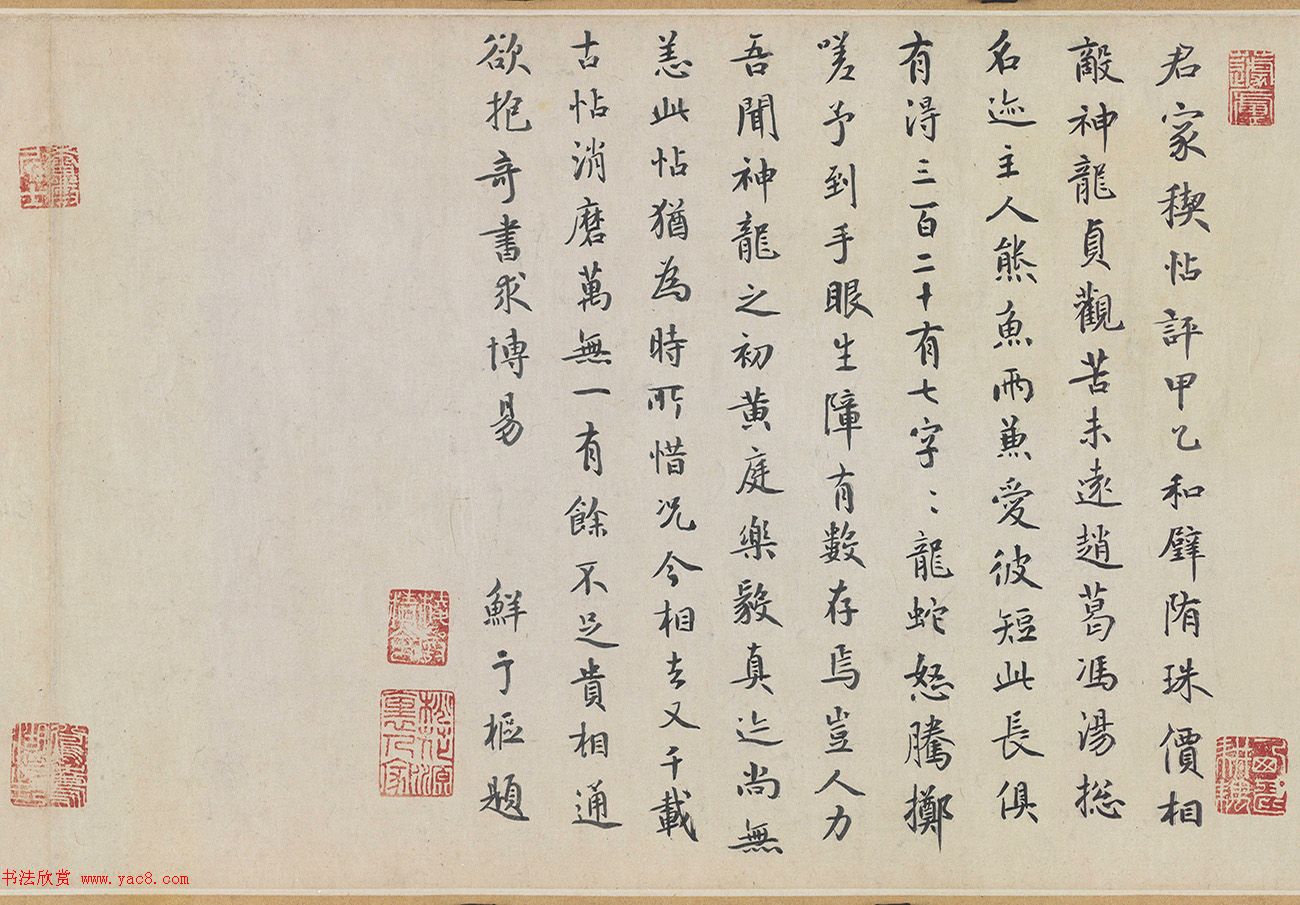 君家稧帖評甲乙和璧隋珠價相
敵神龍貞觀苦未遠趙葛馮湯揔
名迹主人熊魚兩兼愛彼短此長俱
有淂三百二十有七字〻龍蛇怒騰擲
嗟予到手眼生障有數存焉豈人力
吾聞神龍之初黃庭樂毅真迹尚無
恙此帖猶為時所惜况今相去又千載
古帖消磨萬無一有餘不足貴相通
欲抱奇書求博易
鮮于樞題
桃花源裏人家
书法欣赏 www.yac8.com